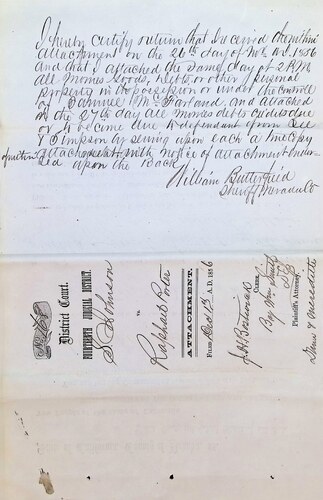 I hereby certify return that I received the within
attachment on the 26th day of 1856
and that I attached the same day at 2 P.M.
all monies goods, or other personal
property in the possession or under the controll
of Samuel McFarland, and attached
on the 27th day all monies debts due
or to become due to defendant from
& Simpson by serving upon each a true copy
of writ attached with notice of attachment
upon the back
William Butterfield
Sheriff Nevada Co
District Court.
FOURTEENTH JUDICIAL DISTRICT.
S Johnson
vs.
Raphael
ATTACHMENT.
FILED Decr 1st A.D. 1856
CLERK.
By Wm Smith
Plaintiff's Attorney
& Meredith